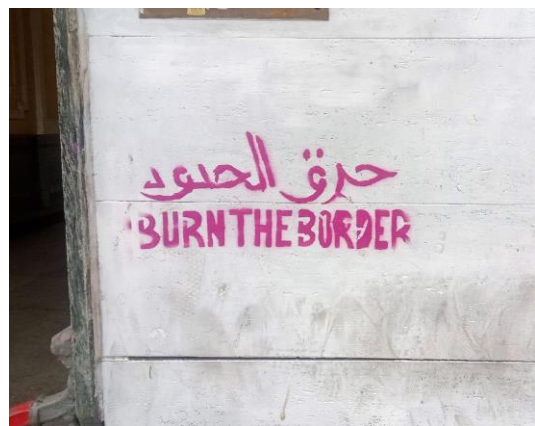 حرق الحدود
BURN THE BORDER